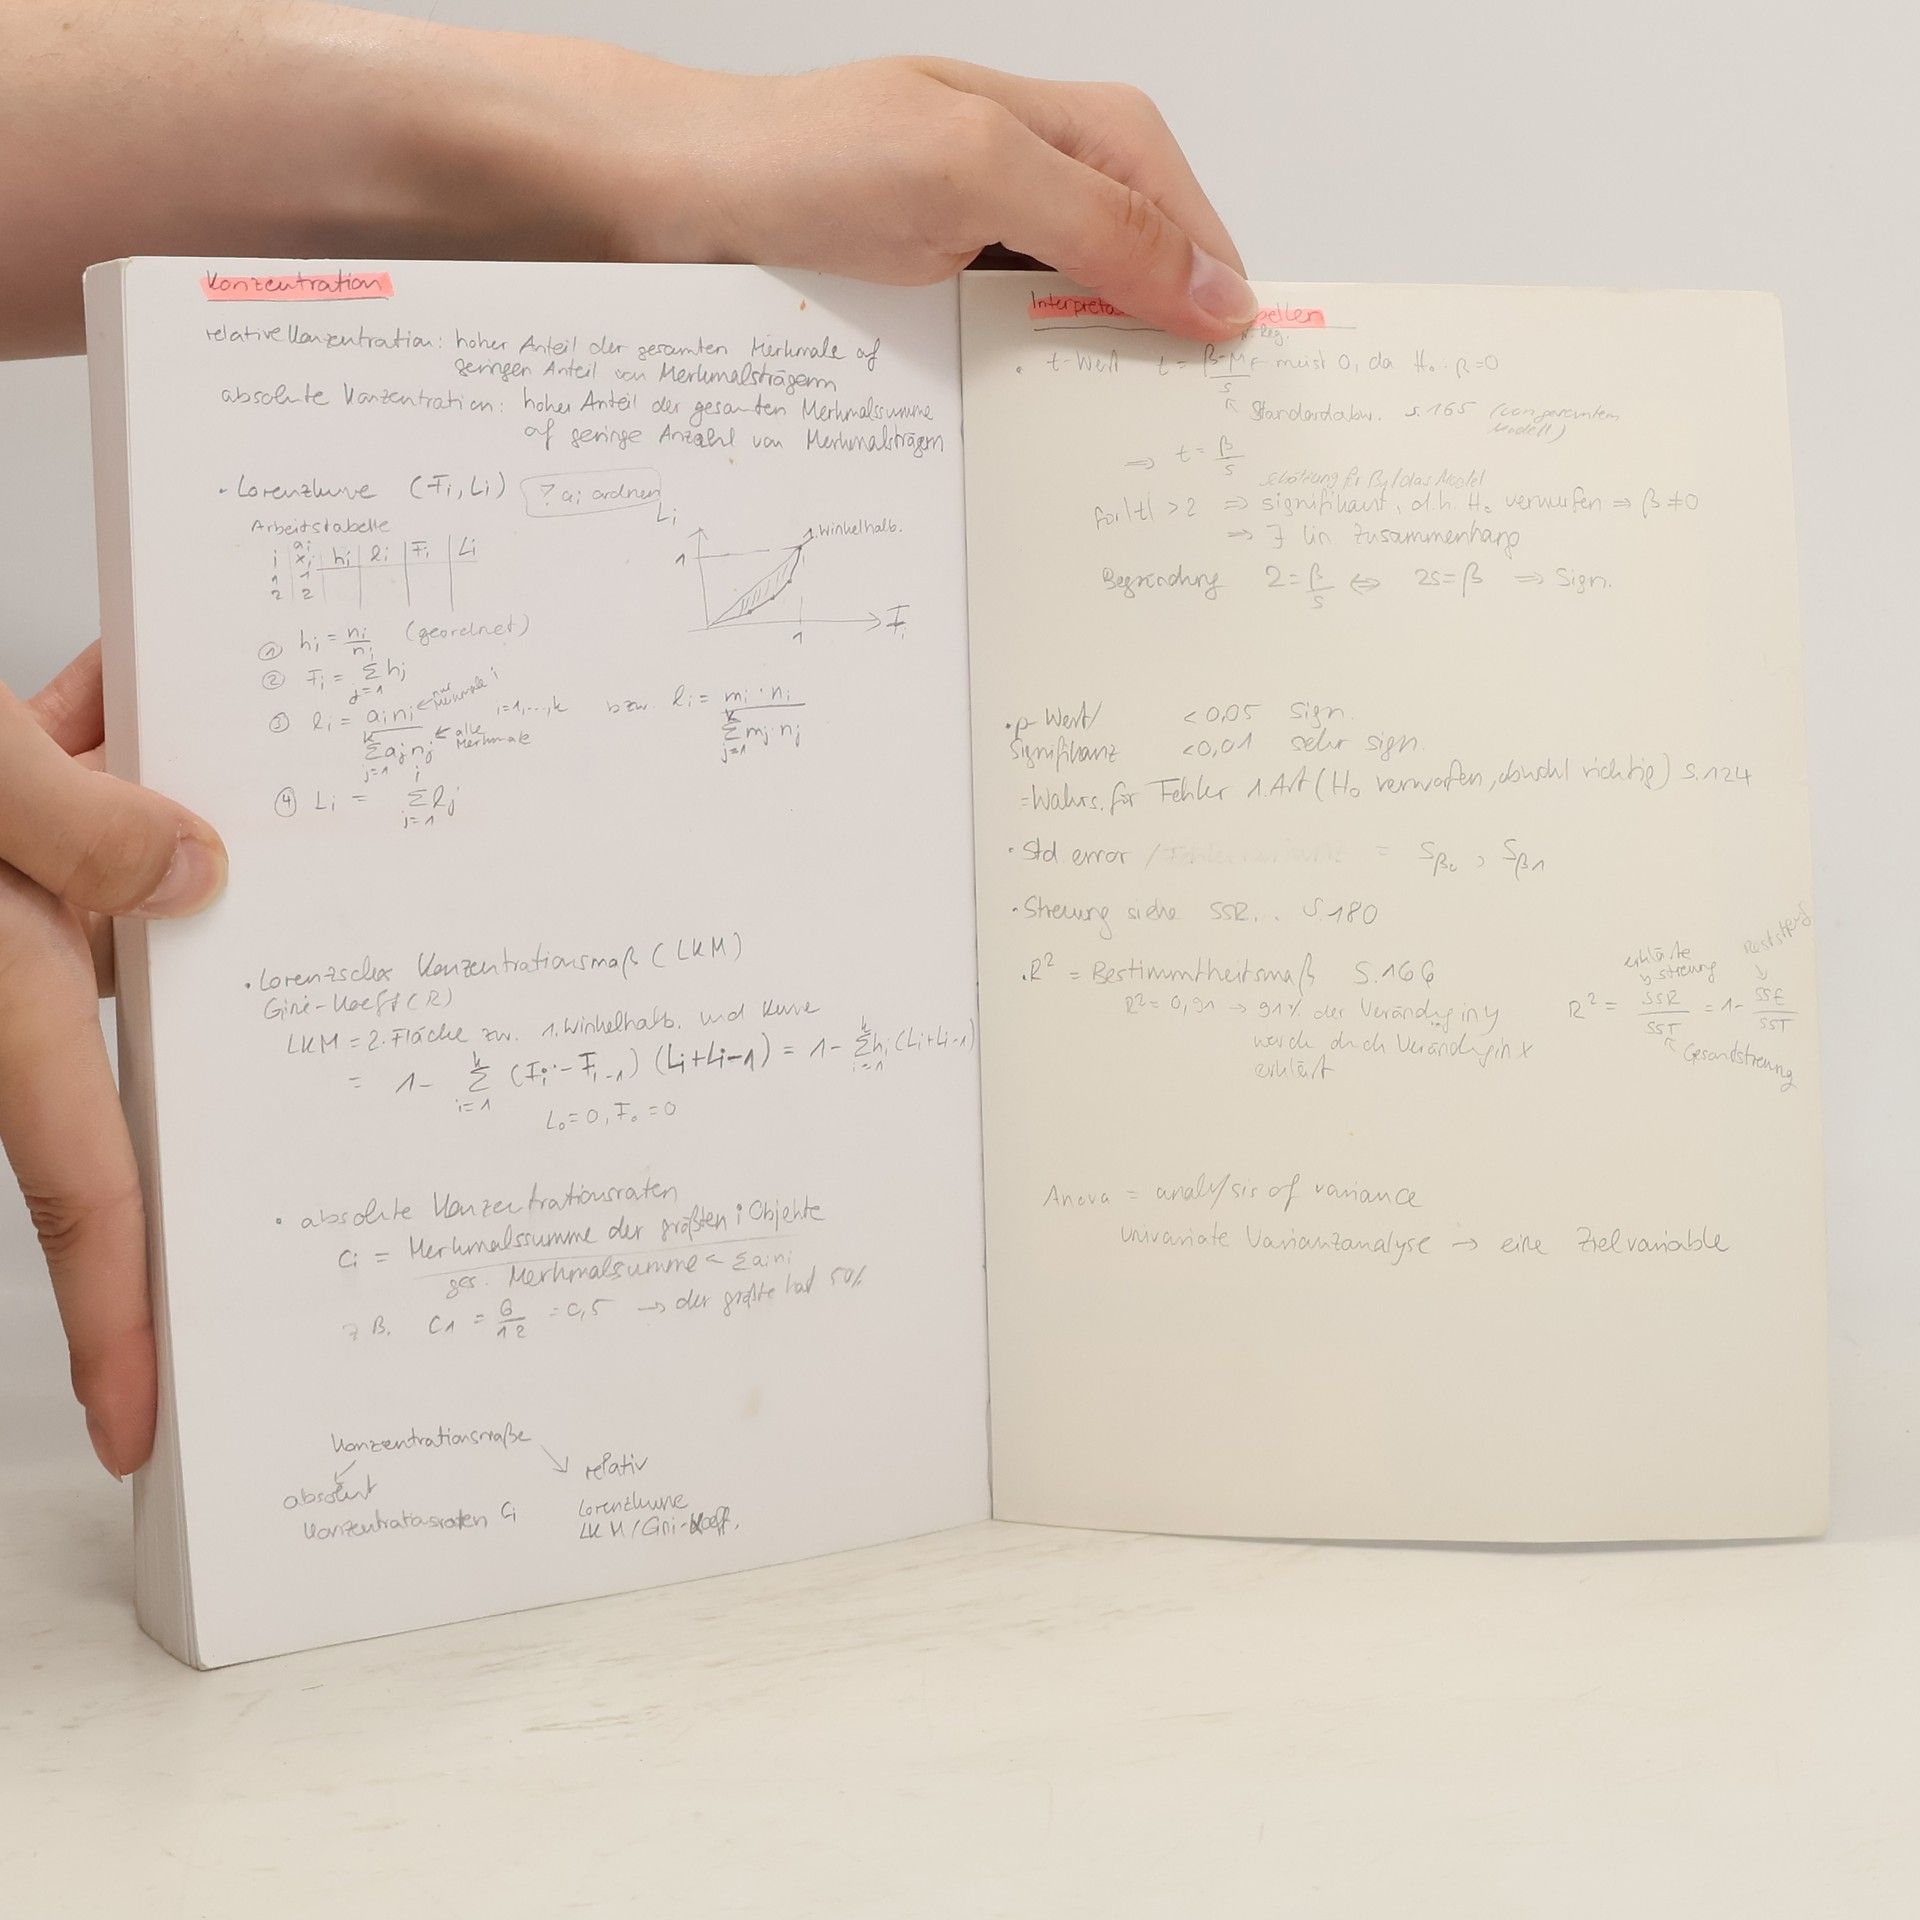 Konzentration
relative Konzentration: hoher Anteil der gesamten Merkmale auf
geringen Anteil von Merkmalsträgern
absolute Konzentration: hoher Anteil der gesamten Merkmalssumme
auf geringe Anzahl von Merkmalsträgern
• Lorenzkurve (Fi, Li) ? ai ordnen
Arbeitstabelle
i | ai xi | hi | li | Fi | Li
1 1
2 2
Li
1
1. Winkelhalb.
1
Fi
① hi = ni/nj (geordnet)
② Fi = Σ hj j=1
③ li = ai ni / Σ aj nj k j=1 ← nur Merkmale i ← alle Merkmale i=1,...,k bzw. li = mi · ni / Σ mj · nj k j=1
④ Li = Σ lj i j=1
• Lorenzsches Konzentrationsmaß (LKM)
Gini-Koeff (R)
LKM = 2·Fläche zw. 1. Winkelhalb. und Kurve
= 1 - Σ (Fi - Fi-1) (Li + Li-1) = 1 - Σ hi (Li + Li-1)
k i=1 k i=1
L0 = 0, F0 = 0
• absolute Konzentrationsraten
Ci = Merkmalssumme der größten i Objekte
ges. Merkmalsumme ← Σ ai ni
z B. C1 = 6/12 = 0,5 → der größte hat 50%
Konzentrationsmaße
absolut
relativ
Konzentrationsraten Ci
Lorenzkurve
LKM / Gini-Koeff.
• t-Wert t = β-μ/s ← meist 0, da H0: β=0
Standardabw. S.165 (von gesamtem
Modell)
⇒ t = β/s
Schätzung für β1/das Modell
für |t| > 2 ⇒ signifikant, d.h. H0 verwerfen ⇒ β ≠ 0
⇒ ∃ lin Zusammenhang
Begründung 2 = β/s ⇔ 2s = β ⇒ Sign.
• p-Wert/ < 0,05 sign.
Signifikanz < 0,01 sehr sign.
= Wahrs. für Fehler 1. Art (H0 verworfen, obwohl richtig) S.124
• Std error / = Sβ0, Sβ1
• Streuung siehe SSR.. S.180
• R² = Bestimmtheitsmaß S.166
R² = 0,91 → 91% der Veränderung in y
werden durch Veränderung in x
erklärt
erklärte Streuung
Reststreuung
R² = SSR/SST = 1 - SSE/SST
Gesamtstreuung
Anova = analysis of variance
univariate Varianzanalyse → eine Zielvariable